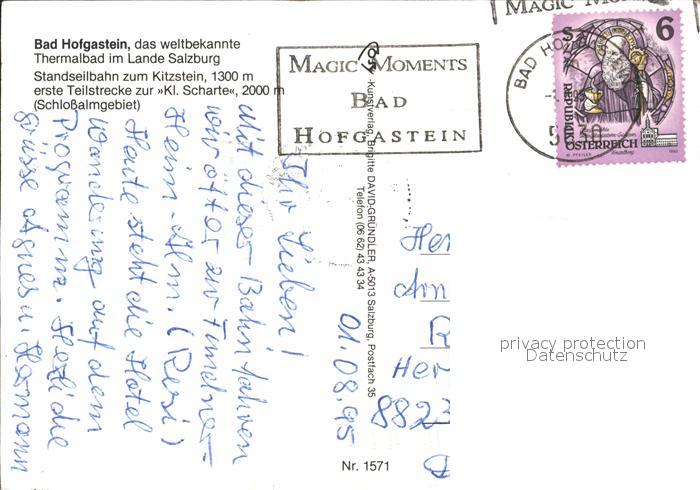 Bad Hofgastein, das weltbekannte
Thermalbad im Lande Salzburg
Standseilbahn zum Kitzstein, 1300 m
erste Teilstrecke zur »Kl. Scharte«, 2000 m
(Schloßalmgebiet)
MAGIC MOMENTS
BAD
HOFGASTEIN
MAGIC MOMENTS
BAD HO
5630
S 6
REPUBLIK
ÖSTERREICH
-Kunstverlag, Brigitte DAVID-GRÜNDLER, A-5013 Salzburg, Postfach 35
Telefon (06 62) 43 43 34
01.08.95
Ihr Lieben!
Mit dieser Bahn fahren
wir öfter zur Fundner-
Heim-Alm. (Resi)
Heute steht die Hotel
Wanderung auf dem
Programm. Herzliche
Grüsse Agnes u. Hermann
Her
Her
8823
Nr. 1571
privacy protection
Datenschutz